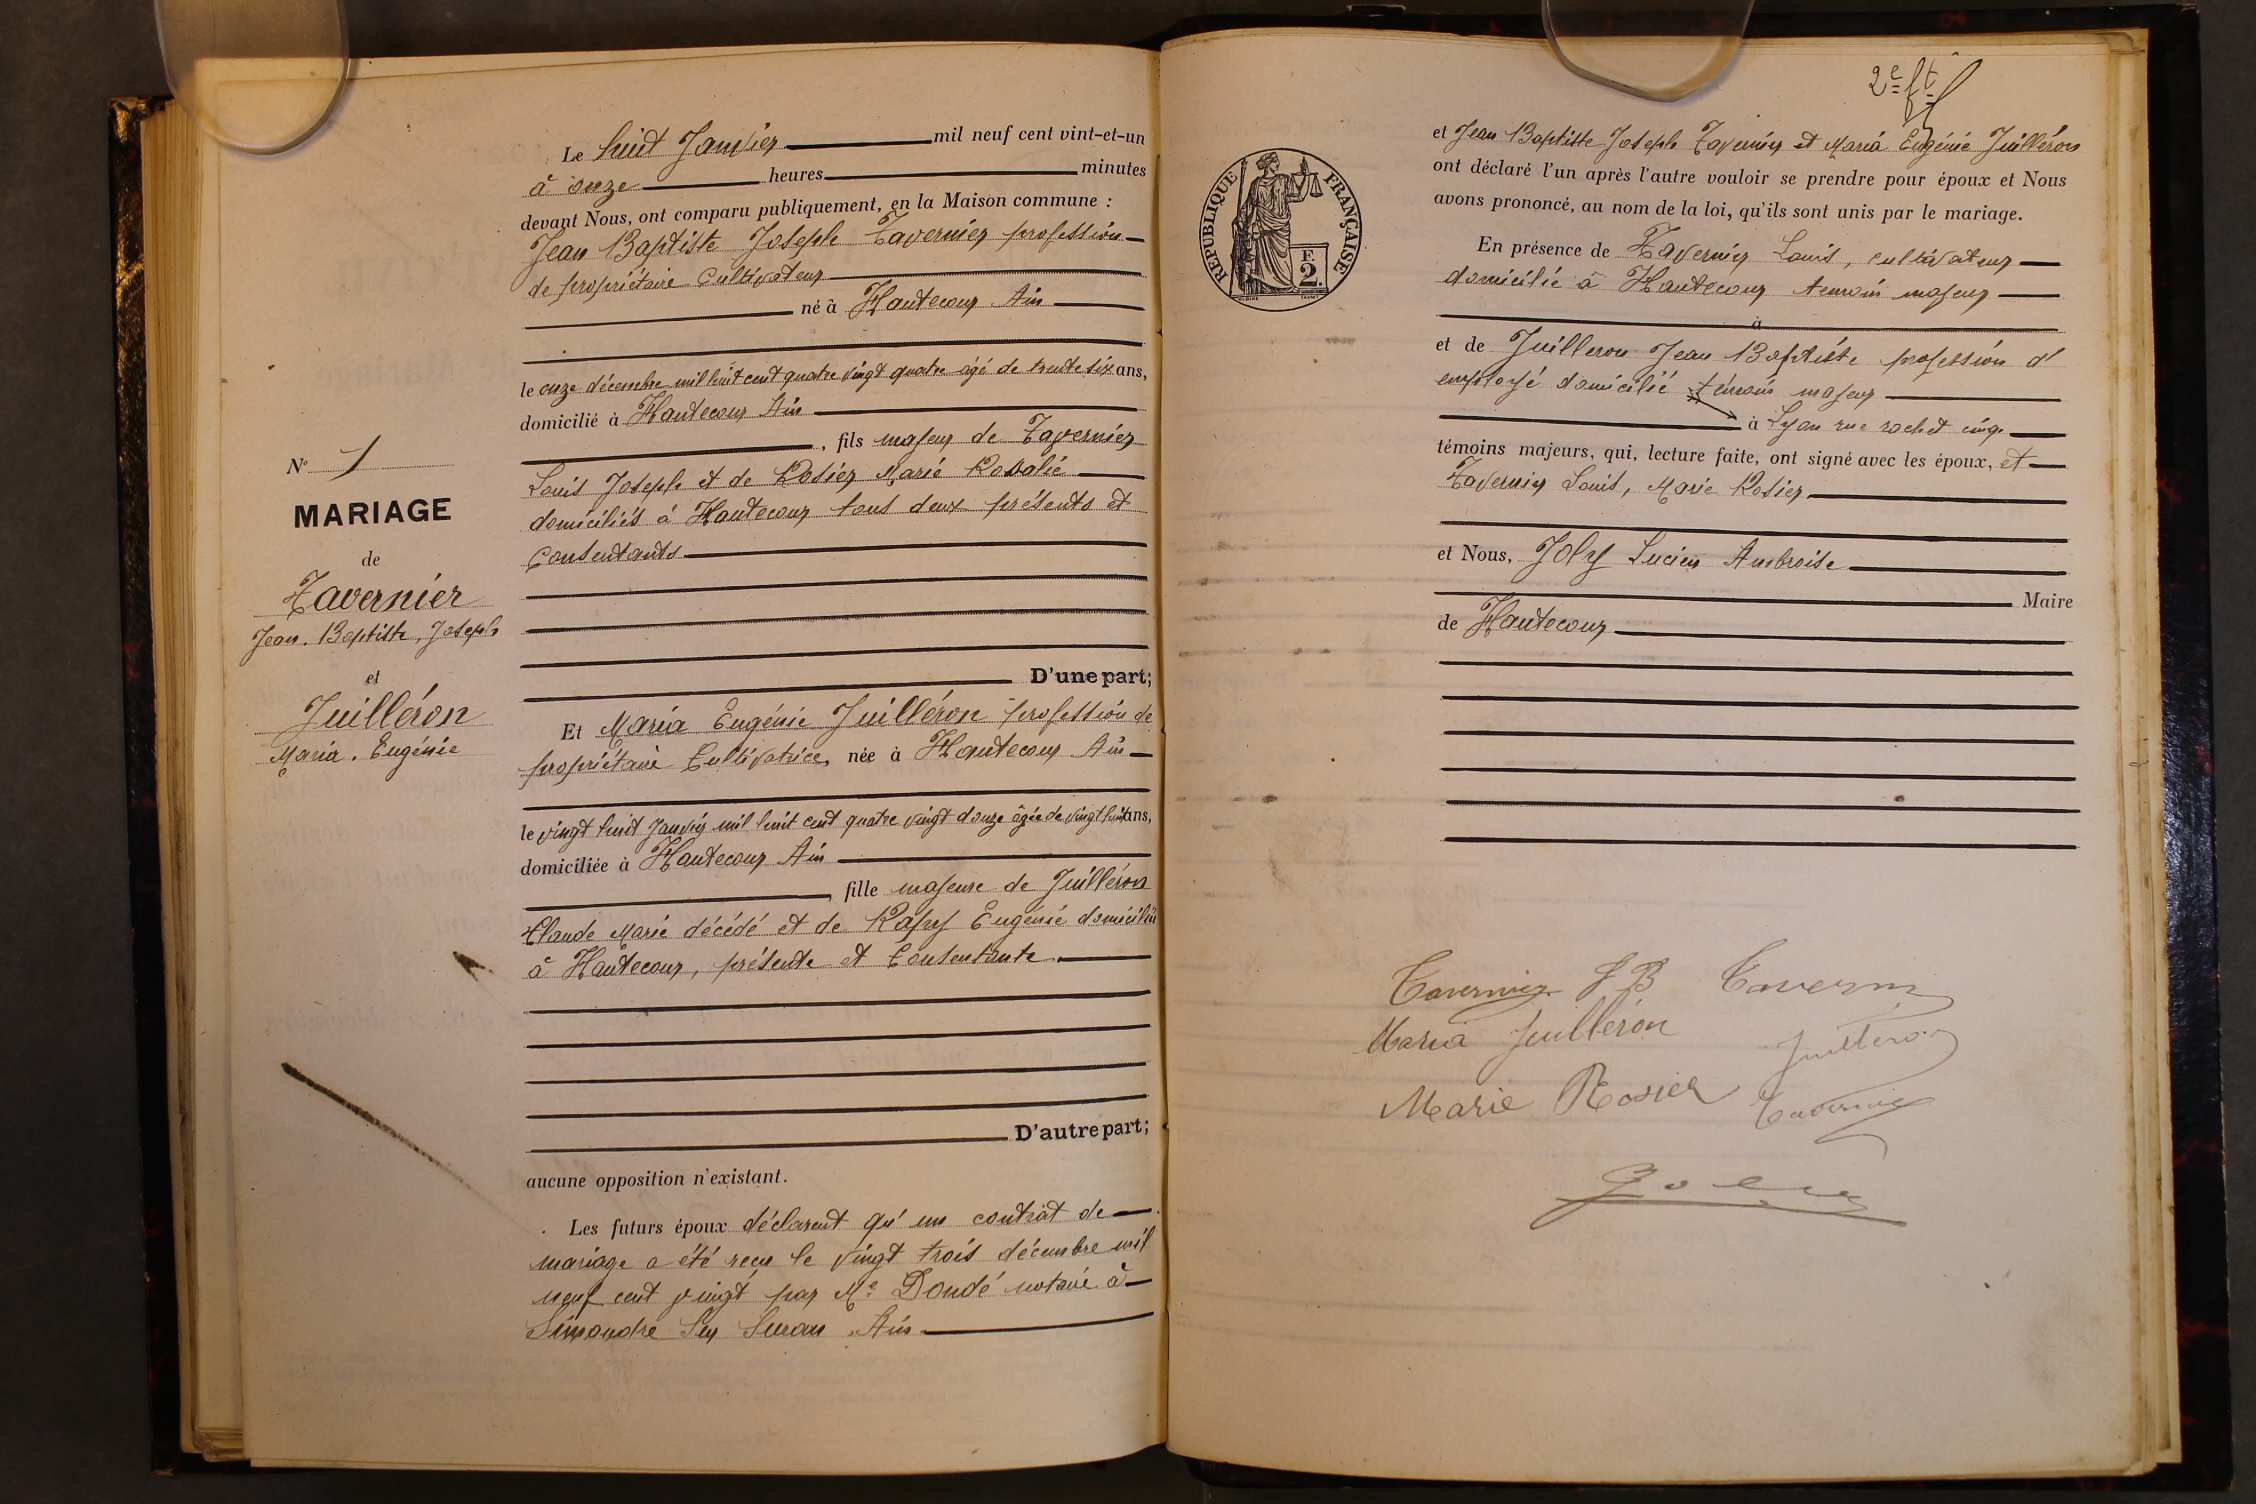 Le huit Janvier mil neuf cent vint-et-un
à onze heures minutes
devant Nous, ont comparu publiquement, en la Maison commune :
Jean Baptiste Joseph Tavernier profession
de propriétaire Cultivateur
né à Hautecour Ain
le onze décembre mil huit cent quatre vingt quatre âgé de trente six ans,
domicilié à Hautecour Ain
, fils majeur de Tavernier
Louis Joseph et de Rosier Marie Rosalie
domiciliés à Hautecour tous deux présents et
Consentants
D'une part;
N° 1
MARIAGE
de
Tavernier
Jean. Baptiste, Joseph
et
Juilléron
Maria. Eugénie
Et Maria Eugénie Juilléron profession de
propriétaire Cultivatrice, née à Hautecour Ain
le vingt huit Janvier mil huit cent quatre vingt douze âgée de vingt huit ans,
domiciliée à Hautecour Ain
, fille majeure de Juilléron
Claude Marie décédé et de Eugénie domiciliée
à Hautecour, présente et Consentante
D'autre part;
aucune opposition n'existant.
Les futurs époux déclarent qu'un contrat de
mariage a été reçu le vingt trois décembre mil
neuf cent vingt par Me Dondé notaire à
Simandre Sur Suran Ain
2e ft
et Jean Baptiste Joseph Tavernier et Maria Eugénie Juilléron
ont déclaré l'un après l'autre vouloir se prendre pour époux et Nous
avons prononcé, au nom de la loi, qu'ils sont unis par le mariage.
REPUBLIQUE FRANÇAISE
E
2.
En présence de Tavernier Louis, cultivateur
domicilié à Hautecour témoin majeur
à
et de Juilleron Jean Baptiste profession d'
employé domicilié témoin majeur
à Lyon rue rachet cinq
témoins majeurs, qui, lecture faite, ont signé avec les époux, et
Tavernier Louis, Marie Rosier
et Nous, Joly Lucien Ambroise
Maire
de Hautecour
Tavernier J B Tavernier
Maria Juilléron Juilleron
Marie Rosier Tavernier
Joly